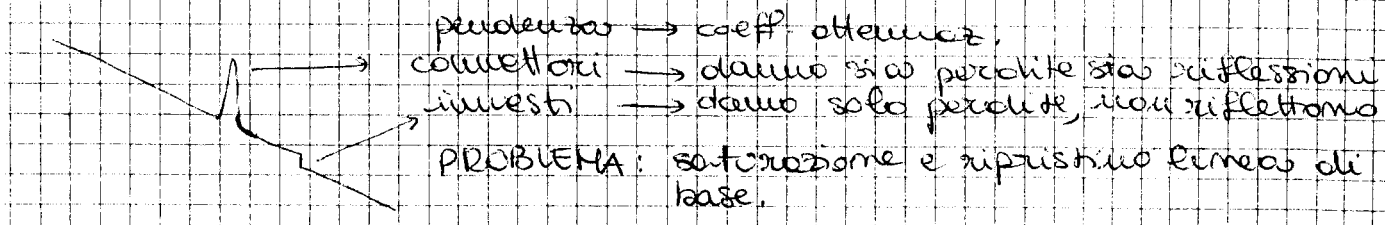 pendenza → coeff. attenuaz.
connettori → danno sia perdite sia riflessioni
innesti → danno solo perdite, non riflettono
PROBLEMA: saturazione e ripristino linea di
base.